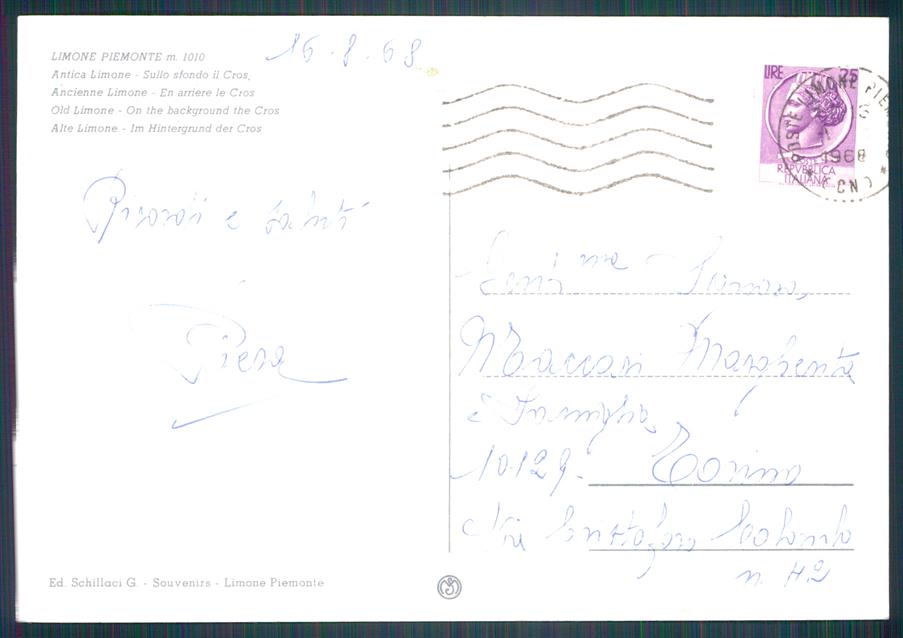 LIMONE PIEMONTE m. 1010
Antica Limone - Sullo sfondo il Cros,
Ancienne Limone - En arriere le Cros
Old Limone - On the background the Cros
Alte Limone - Im Hintergrund der Cros
16.8.68
LIRE 25
POSTE REPVBBLICA
ITALIANA
POSTE LIMONE PIEM
1968
(CN)
Ricordi e saluti
Piera
Gent.ma Signora,
Maccari Margherita
e Famiglia,
10129 - Torino
Via Cristoforo Colombo
n. 42
Ed. Schillaci G. - Souvenirs - Limone Piemonte